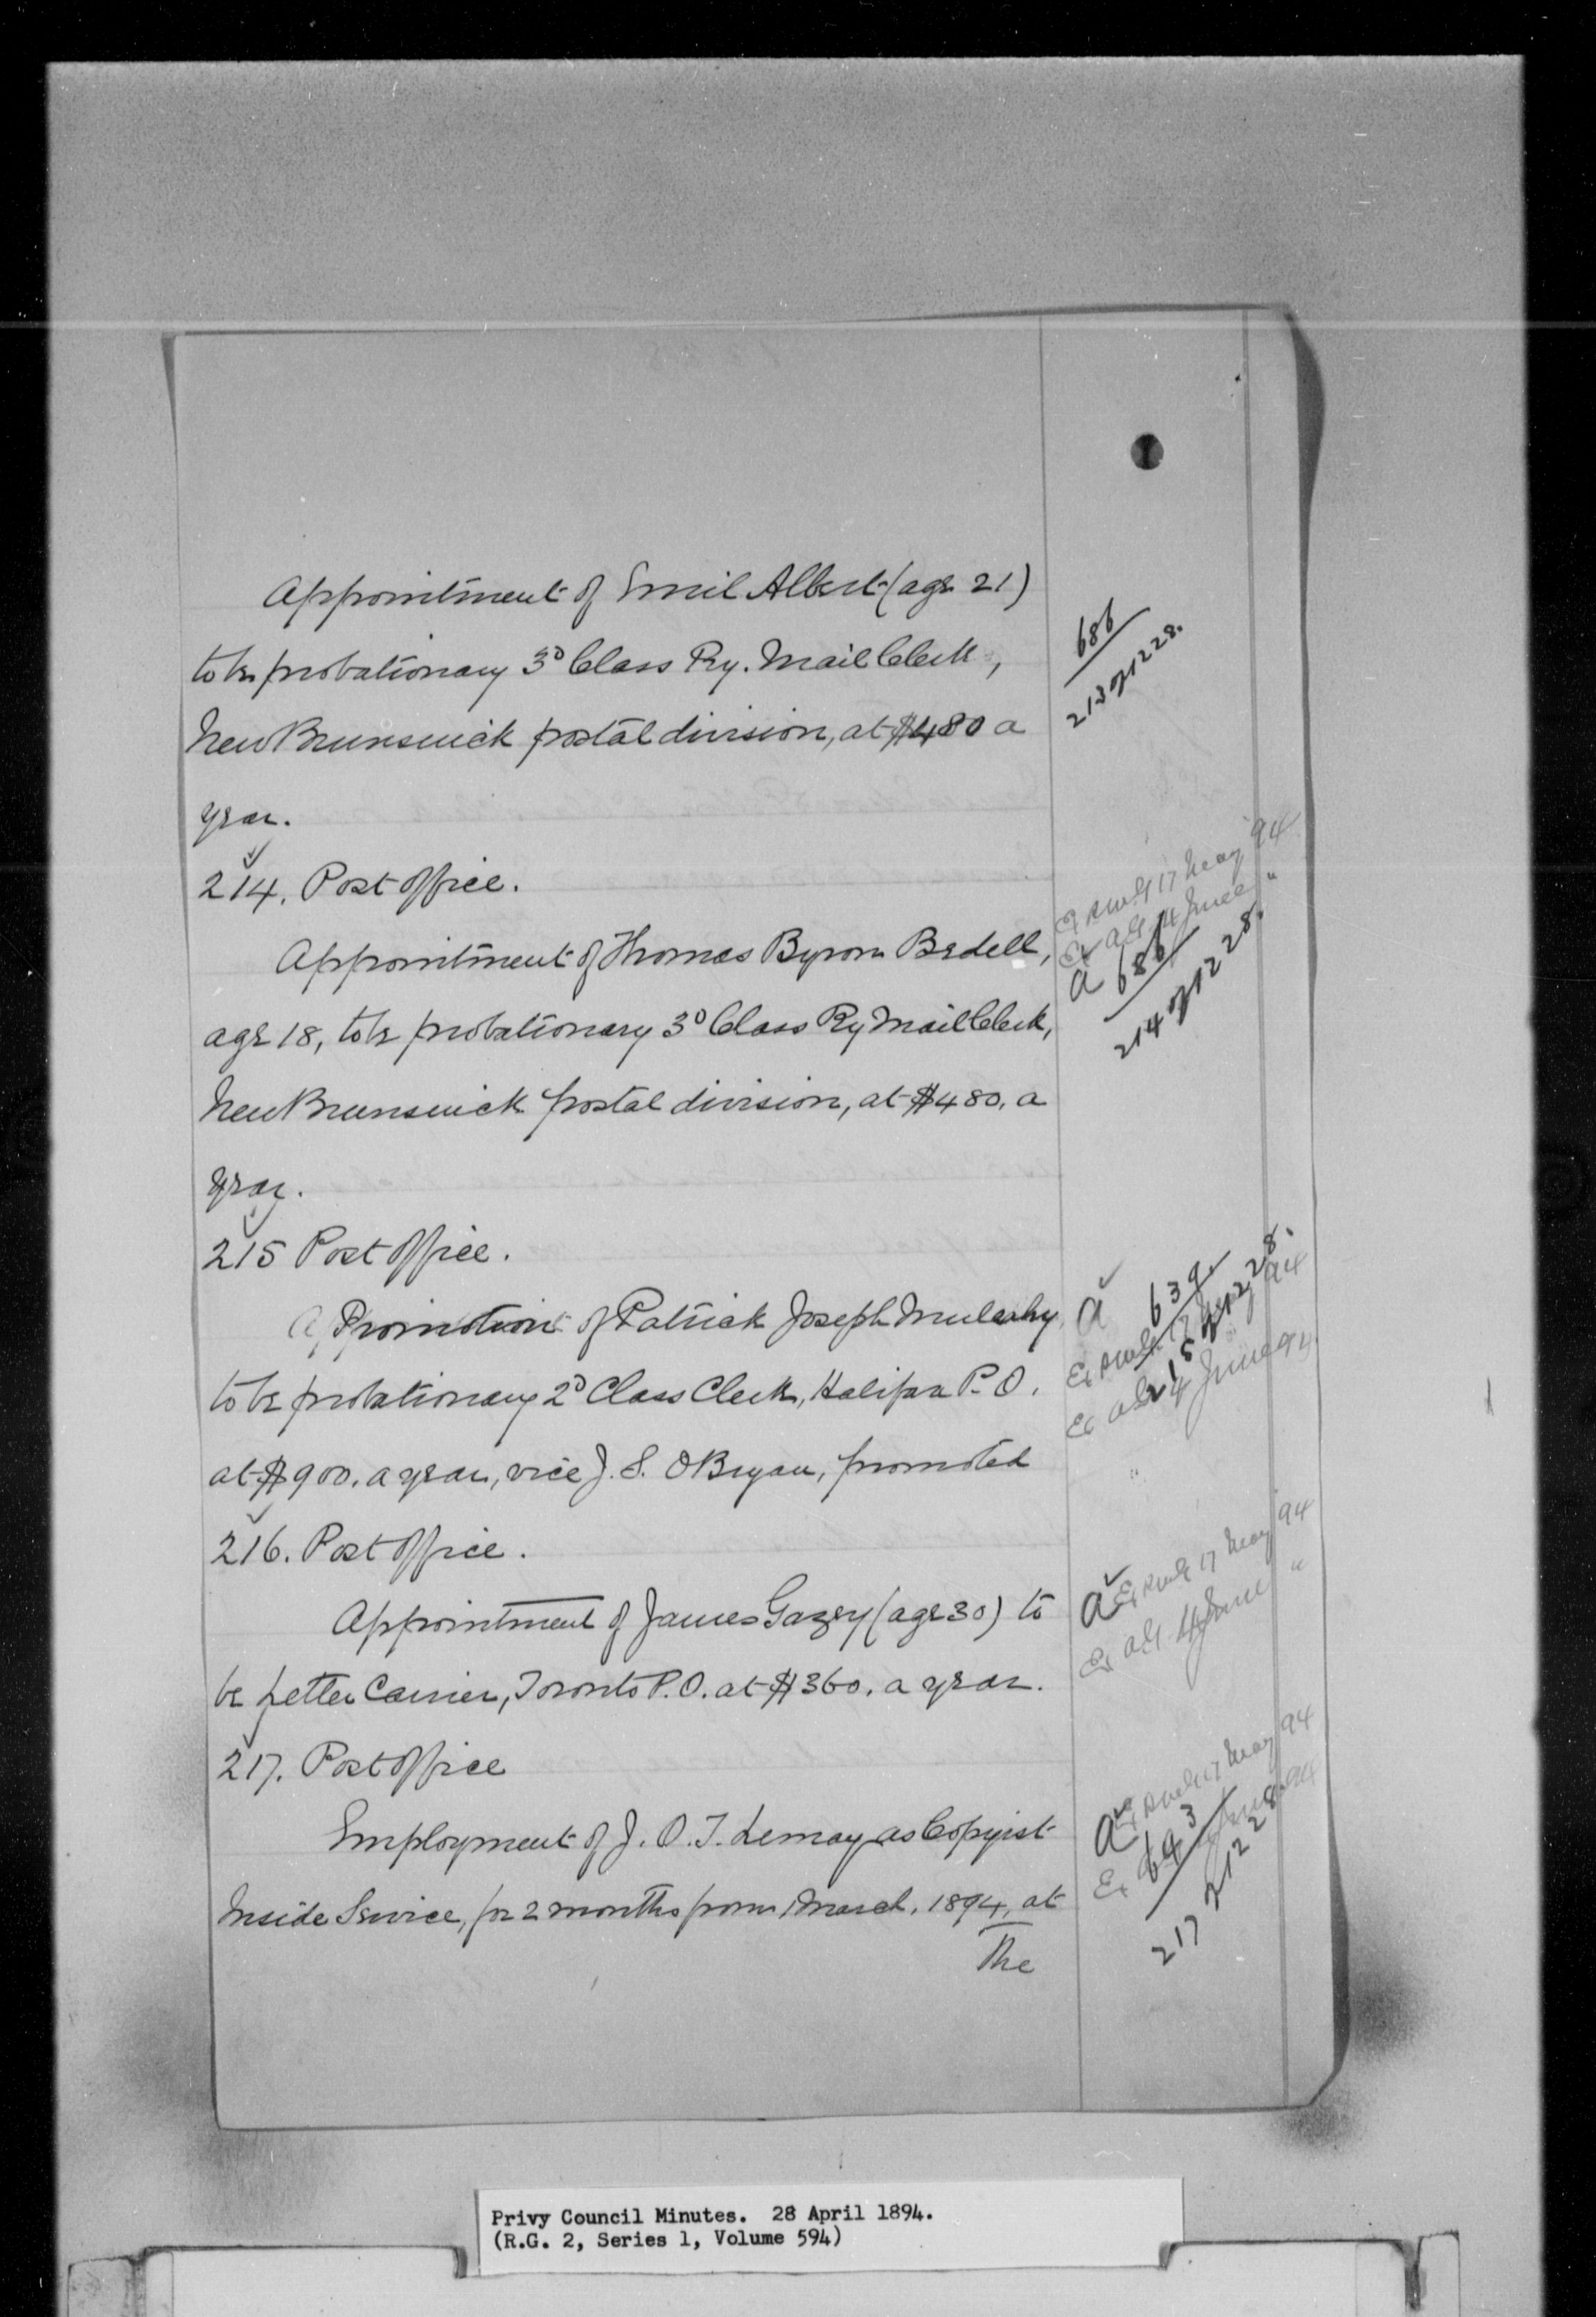 Appointment of Emil Albert (age 21)
to be probationary 3º Class Ry. Mail Clerk,
New Brunswick postal division, at $480 a
year.
686
213 of 1228.
214. Post Office.
Appointment of Thomas Byron Bedell,
age 18, to be probationary 3º Class Ry Mail Clerk,
New Brunswick postal division, at $480. a
year.
17 May 94
4 June "
a 686
214 of 1228.
215 Post Office.
Promotion of Patrick Joseph Mulcahy
to be probationary 2º Class Clerk, Halifax P.O.
at $900. a year, vice J. S. O'Bryan, promoted
a 639
215 of 1228.
17 May 94
4 June 94
216. Post Office.
Appointment of James Gazey (age 30) to
be Letter Carrier, Toronto P.O. at $360. a year.
a
17 May 94
4 June "
217. Post Office
Employment of J. O. T. Lemay as Copyist
Inside Service, for 2 months from 1 March, 1894, at
The
a
17 May 94
643
217 of 1228
Privy Council Minutes. 28 April 1894.
(R.G. 2, Series 1, Volume 594)